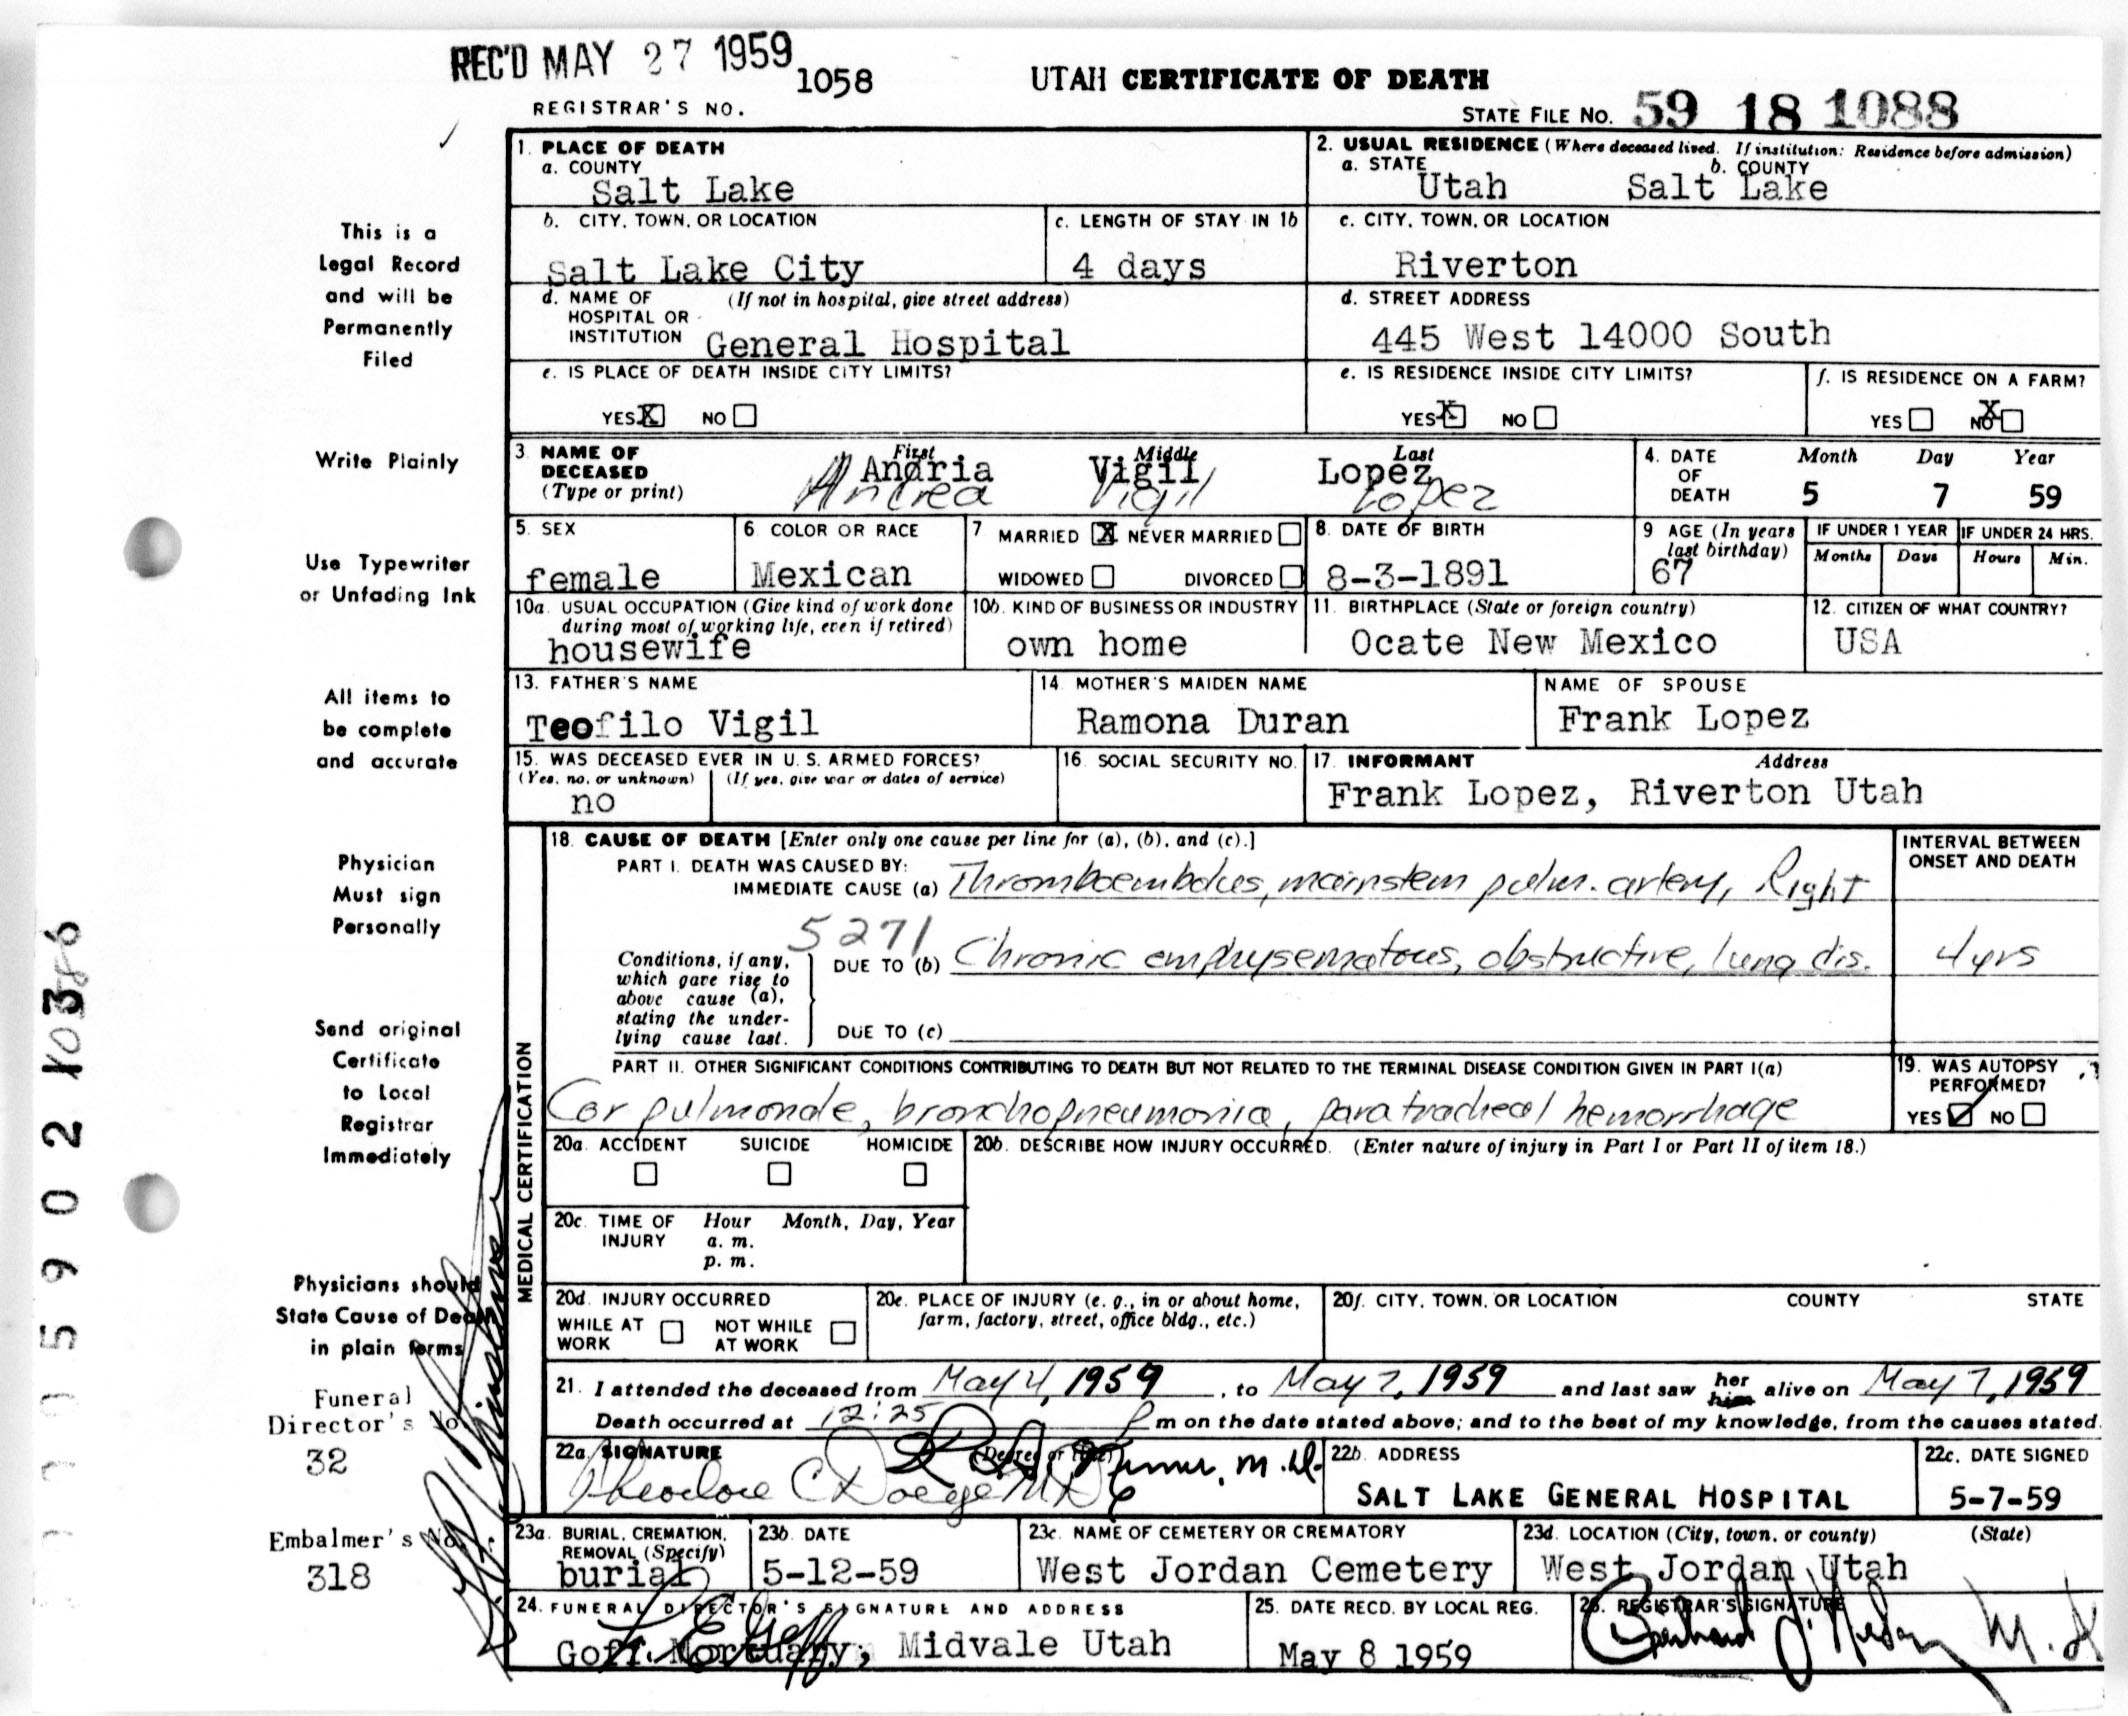 REC'D MAY 27 1959
1058
REGISTRAR'S NO.
UTAH CERTIFICATE OF DEATH
STATE FILE NO. 59 18 1088
This is a
Legal Record
and will be
Permanently
Filed
Write Plainly
Use Typewriter
or Unfading Ink
All items to
be complete
and accurate
Physician
Must sign
Personally
Send original
Certificate
to Local
Registrar
Immediately
Physicians should
State Cause of Death
in plain terms
Funeral
Director's No.
32
Embalmer's No.
318
1. PLACE OF DEATH
a. COUNTY
Salt Lake
2. USUAL RESIDENCE (Where deceased lived. If institution: Residence before admission)
a. STATE b. COUNTY
Utah Salt Lake
b. CITY, TOWN, OR LOCATION
Salt Lake City
c. LENGTH OF STAY IN 1b
4 days
c. CITY, TOWN, OR LOCATION
Riverton
d. NAME OF (If not in hospital, give street address)
HOSPITAL OR
INSTITUTION General Hospital
d. STREET ADDRESS
445 West 14000 South
e. IS PLACE OF DEATH INSIDE CITY LIMITS?
YES X NO
e. IS RESIDENCE INSIDE CITY LIMITS?
YES X NO
f. IS RESIDENCE ON A FARM?
YES NO X
3. NAME OF
DECEASED
(Type or print)
First Middle Last
Andria Vigil Lopez
Andrea Vigil Lopez
4. DATE
OF
DEATH
Month Day Year
5 7 59
5. SEX
female
6. COLOR OR RACE
Mexican
7 MARRIED X NEVER MARRIED
WIDOWED DIVORCED
8. DATE OF BIRTH
8-3-1891
9 AGE (In years
last birthday)
67
IF UNDER 1 YEAR
Months Days
IF UNDER 24 HRS.
Hours Min.
10a. USUAL OCCUPATION (Give kind of work done
during most of working life, even if retired)
housewife
10b. KIND OF BUSINESS OR INDUSTRY
own home
11. BIRTHPLACE (State or foreign country)
Ocate New Mexico
12. CITIZEN OF WHAT COUNTRY?
USA
13. FATHER'S NAME
Teofilo Vigil
14. MOTHER'S MAIDEN NAME
Ramona Duran
NAME OF SPOUSE
Frank Lopez
15. WAS DECEASED EVER IN U. S. ARMED FORCES?
(Yes, no, or unknown) (If yes, give war or dates of service)
no
16. SOCIAL SECURITY NO.
17. INFORMANT Address
Frank Lopez, Riverton Utah
MEDICAL CERTIFICATION
18. CAUSE OF DEATH [Enter only one cause per line for (a), (b), and (c).]
PART I. DEATH WAS CAUSED BY:
IMMEDIATE CAUSE (a) Thromboembolus, mainstem pulm. artery, Right
INTERVAL BETWEEN
ONSET AND DEATH
5271
Conditions, if any,
which gave rise to
above cause (a),
stating the under-
lying cause last.
DUE TO (b) Chronic emphysematous, obstructive, lung dis. 4 yrs
DUE TO (c)
PART II. OTHER SIGNIFICANT CONDITIONS CONTRIBUTING TO DEATH BUT NOT RELATED TO THE TERMINAL DISEASE CONDITION GIVEN IN PART I(a)
Cor pulmonale, bronchopneumonia, paratracheal hemorrhage
19. WAS AUTOPSY
PERFORMED?
YES NO
20a. ACCIDENT SUICIDE HOMICIDE
20b. DESCRIBE HOW INJURY OCCURRED. (Enter nature of injury in Part I or Part II of item 18.)
20c. TIME OF Hour Month, Day, Year
INJURY a. m.
p. m.
20d. INJURY OCCURRED
WHILE AT WORK NOT WHILE AT WORK
20e. PLACE OF INJURY (e. g., in or about home,
farm, factory, street, office bldg., etc.)
20f. CITY, TOWN, OR LOCATION COUNTY STATE
21. I attended the deceased from May 4, 1959, to May 7, 1959 and last saw her him alive on May 7, 1959
Death occurred at 12:25 P m on the date stated above; and to the best of my knowledge, from the causes stated.
22a. SIGNATURE (Degree or title)
Theodore C Doege MD
22b. ADDRESS
SALT LAKE GENERAL HOSPITAL
22c. DATE SIGNED
5-7-59
23a. BURIAL, CREMATION,
REMOVAL (Specify)
burial
23b. DATE
5-12-59
23c. NAME OF CEMETERY OR CREMATORY
West Jordan Cemetery
23d. LOCATION (City, town, or county) (State)
West Jordan Utah
24. FUNERAL DIRECTOR'S SIGNATURE AND ADDRESS
Goff Mortuary, Midvale Utah
25. DATE RECD. BY LOCAL REG.
May 8 1959
26. REGISTRAR'S SIGNATURE